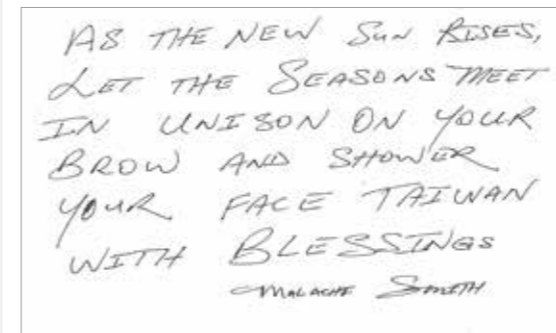 AS THE NEW SUN RISES,
LET THE SEASONS MEET
IN UNISON ON YOUR
BROW AND SHOWER
YOUR FACE TAIWAN
WITH BLESSINGS
MALACHI SMITH